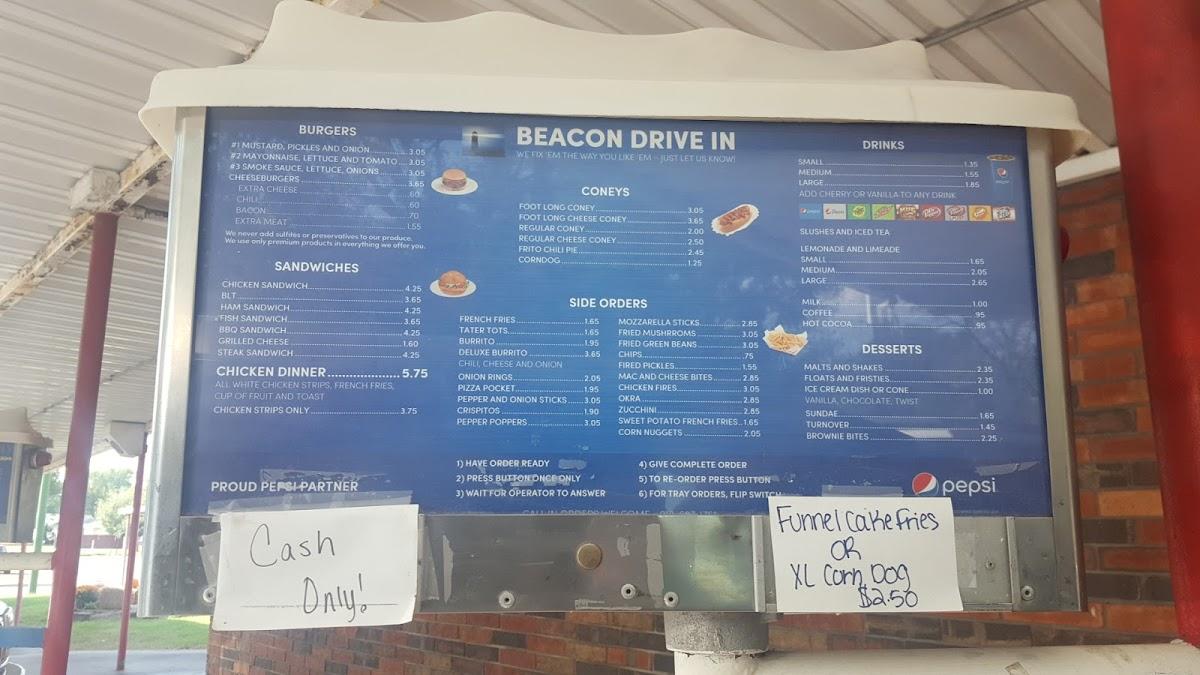 BEACON DRIVE IN
WE FIX 'EM THE WAY YOU LIKE 'EM - JUST LET US KNOW!
BURGERS
#1 MUSTARD, PICKLES AND ONION 3.05
#2 MAYONNAISE, LETTUCE AND TOMATO 3.05
#3 SMOKE SAUCE, LETTUCE, ONIONS 3.05
CHEESEBURGERS 3.65
EXTRA CHEESE .60
CHILI .60
BACON .70
EXTRA MEAT 1.55
We never add sulfites or preservatives to our produce.
We use only premium products in everything we offer you.
SANDWICHES
CHICKEN SANDWICH 4.25
BLT 3.65
HAM SANDWICH 4.25
FISH SANDWICH 3.65
BBQ SANDWICH 4.25
GRILLED CHEESE 1.60
STEAK SANDWICH 4.25
CHICKEN DINNER 5.75
ALL WHITE CHICKEN STRIPS, FRENCH FRIES,
CUP OF FRUIT AND TOAST
CHICKEN STRIPS ONLY 3.75
PROUD PEPSI PARTNER
CONEYS
FOOT LONG CONEY 3.05
FOOT LONG CHEESE CONEY 3.65
REGULAR CONEY 2.00
REGULAR CHEESE CONEY 2.50
FRITO CHILI PIE 2.45
CORNDOG 1.25
SIDE ORDERS
FRENCH FRIES 1.65
TATER TOTS 1.65
BURRITO 1.95
DELUXE BURRITO 3.65
CHILI, CHEESE AND ONION
ONION RINGS 2.05
PIZZA POCKET 1.95
PEPPER AND ONION STICKS 3.05
CRISPITOS 1.90
PEPPER POPPERS 3.05
MOZZARELLA STICKS 2.85
FRIED MUSHRROMS 3.05
FRIED GREEN BEANS 3.05
CHIPS .75
FIRED PICKLES 1.55
MAC AND CHEESE BITES 2.85
CHICKEN FIRES 3.05
OKRA 2.85
ZUCCHINI 2.85
SWEET POTATO FRENCH FRIES 1.65
CORN NUGGETS 2.05
1) HAVE ORDER READY
2) PRESS BUTTON ONCE ONLY
3) WAIT FOR OPERATOR TO ANSWER
4) GIVE COMPLETE ORDER
5) TO RE-ORDER PRESS BUTTON
6) FOR TRAY ORDERS, FLIP SWITCH
DRINKS
SMALL 1.35
MEDIUM 1.55
LARGE 1.85
ADD CHERRY OR VANILLA TO ANY DRINK
SLUSHES AND ICED TEA
LEMONADE AND LIMEADE
SMALL 1.65
MEDIUM 2.05
LARGE 2.65
MILK 1.00
COFFEE .95
HOT COCOA .95
DESSERTS
MALTS AND SHAKES 2.35
FLOATS AND FRISTIES 2.35
ICE CREAM DISH OR CONE 1.00
VANILLA, CHOCOLATE, TWIST
SUNDAE 1.65
TURNOVER 1.45
BROWNIE BITES 2.25
pepsi
Cash
Only!
Funnel Cake Fries
OR
XL Corn Dog
$2.50